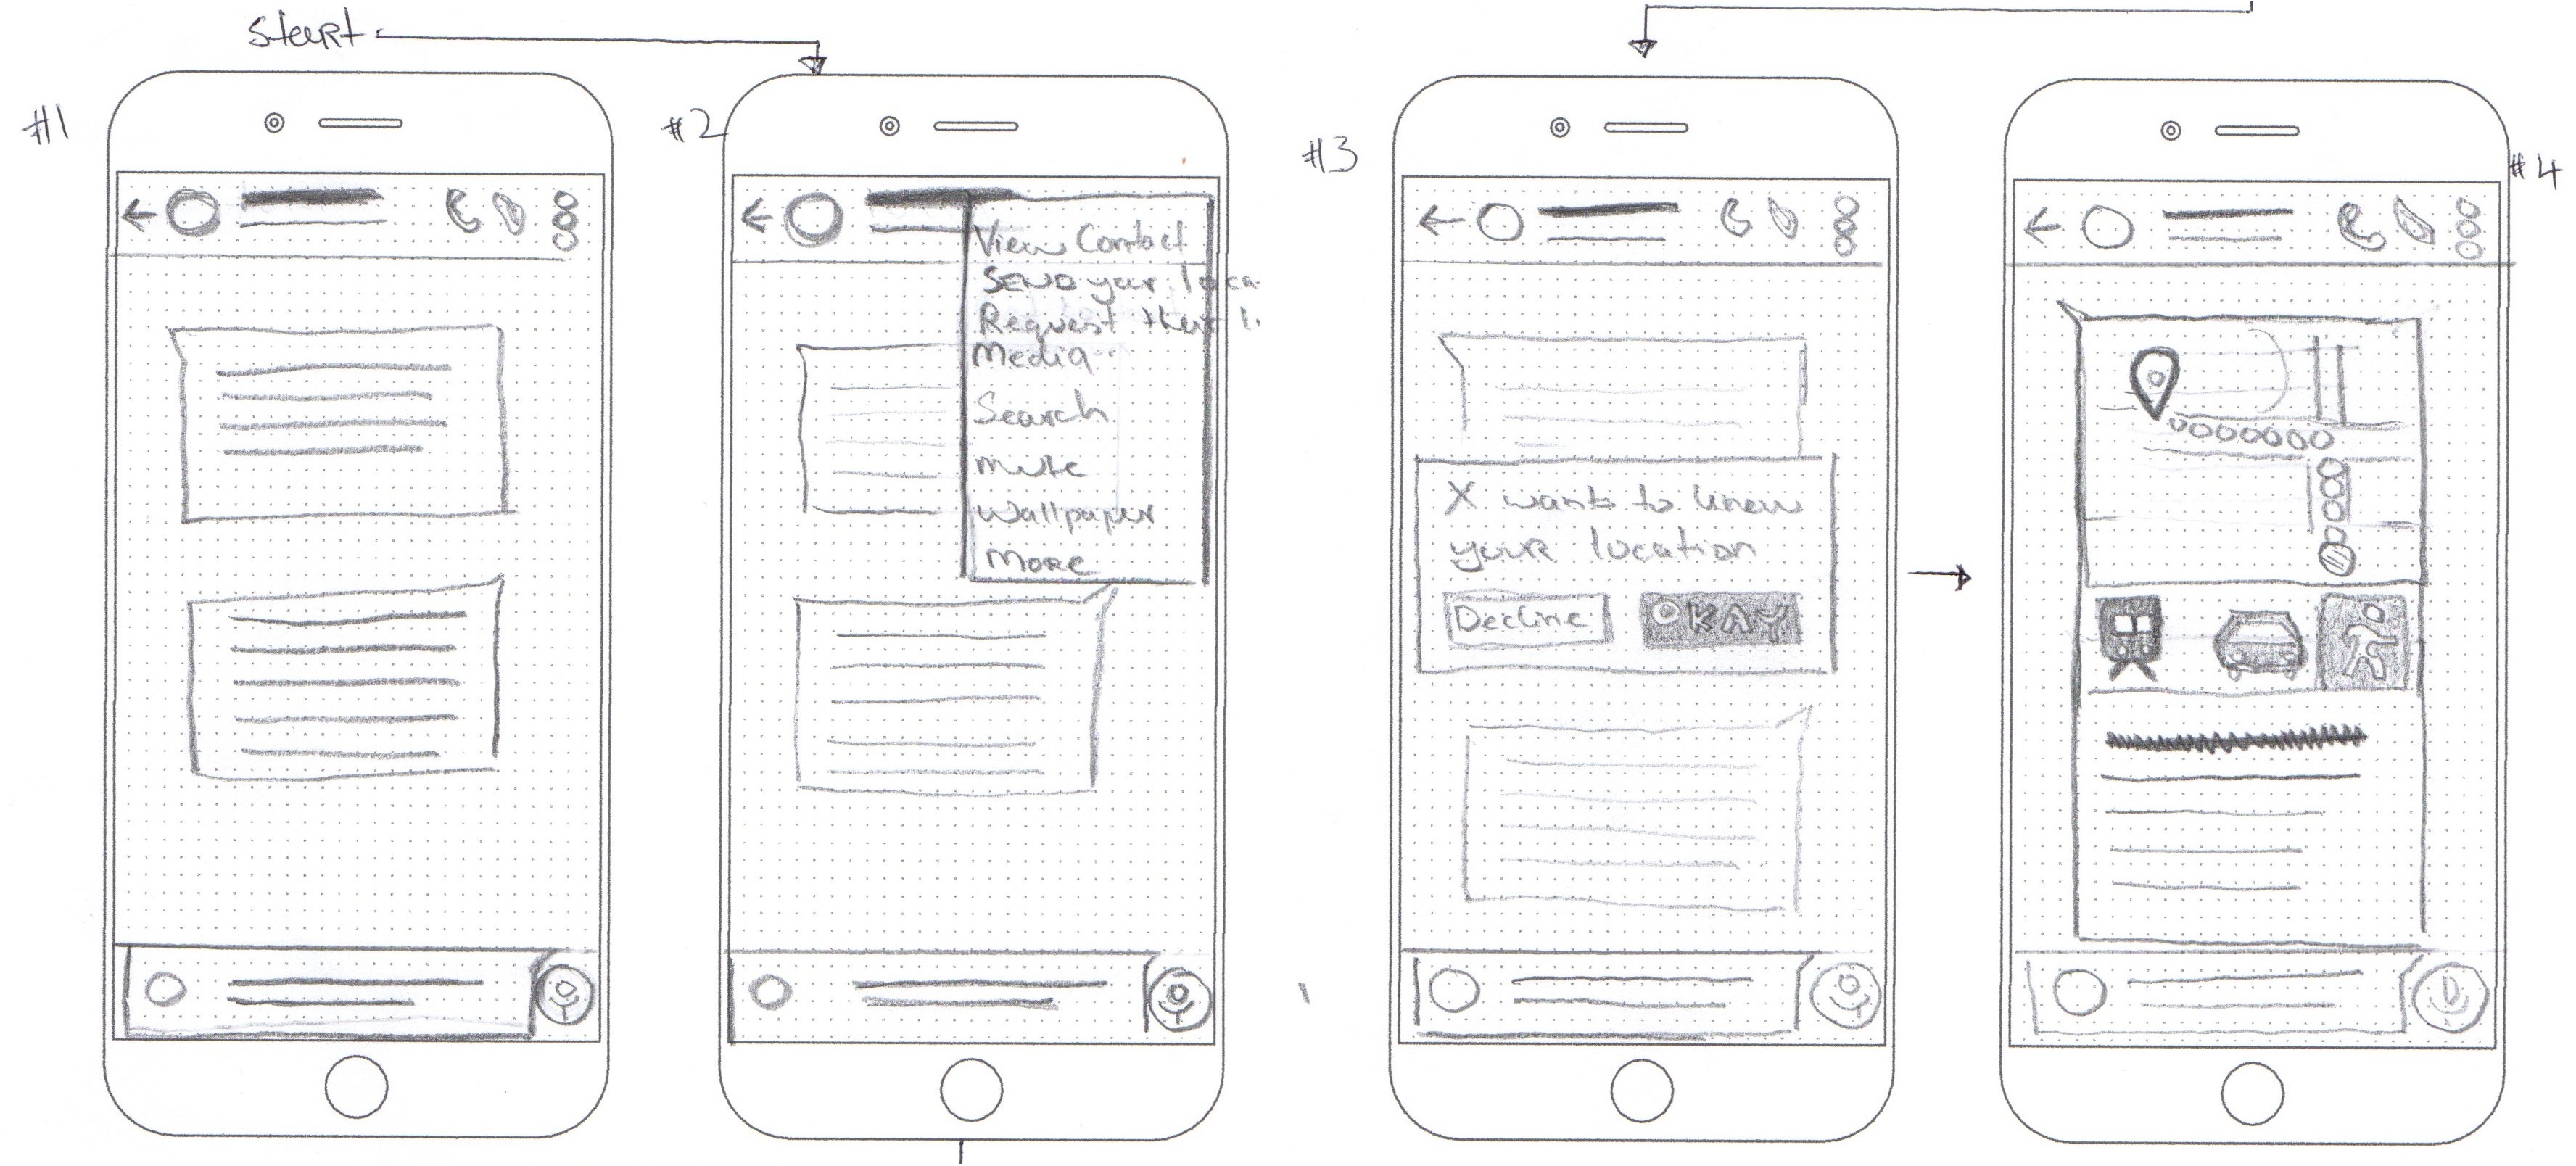 Start
#1
#2
View Contact
Send your loca
Request their l
Media
Search
mute
Wallpaper
More
#3
X wants to know
your location
Decline
OKAY
#4